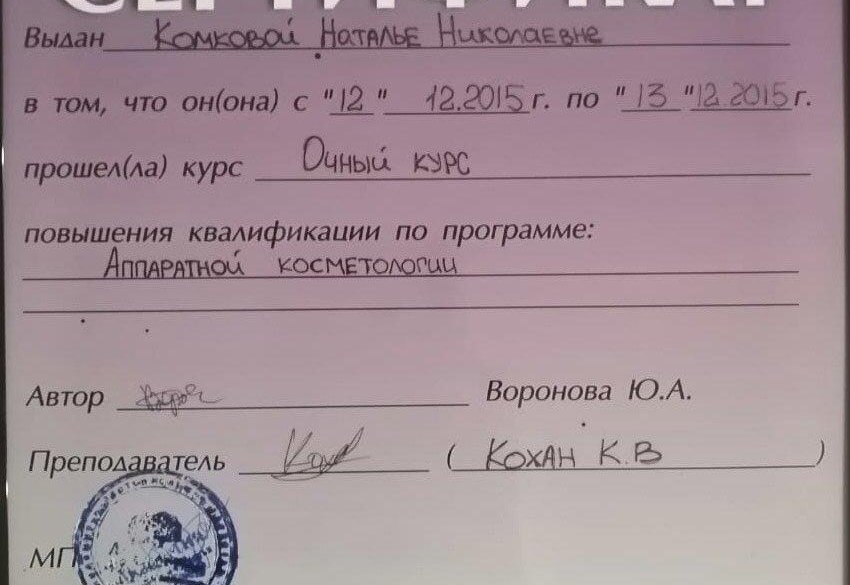 СЕРТИФИКАТ
Выдан Комковой Наталье Николаевне
в том, что он(она) с "12" 12.2015 г. по "13" 12.2015 г.
прошел(ла) курс Очный курс
повышения квалификации по программе:
Аппаратной косметологии
Автор Воронова Ю.А.
Преподаватель (Кохан К.В)
МП